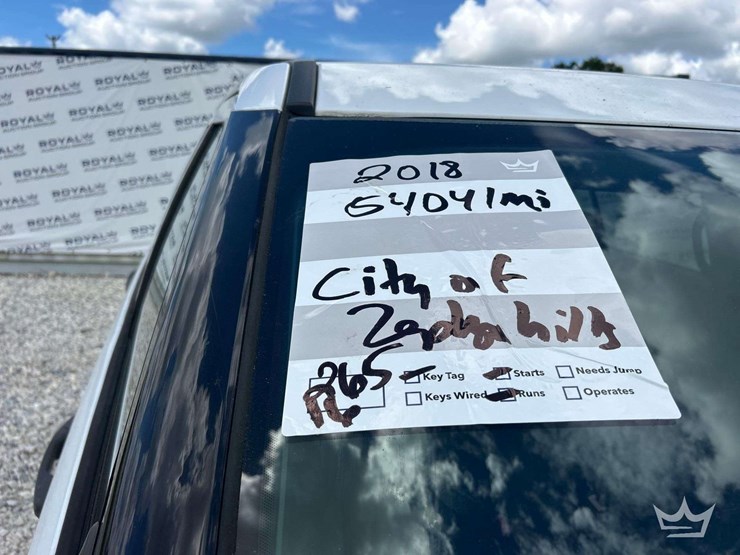 ROYAL
AUCTION GROUP
2018
54041mi
City of
Zephyrhills
265
Key Tag
Starts
Needs Jump
Keys Wired
Runs
Operates